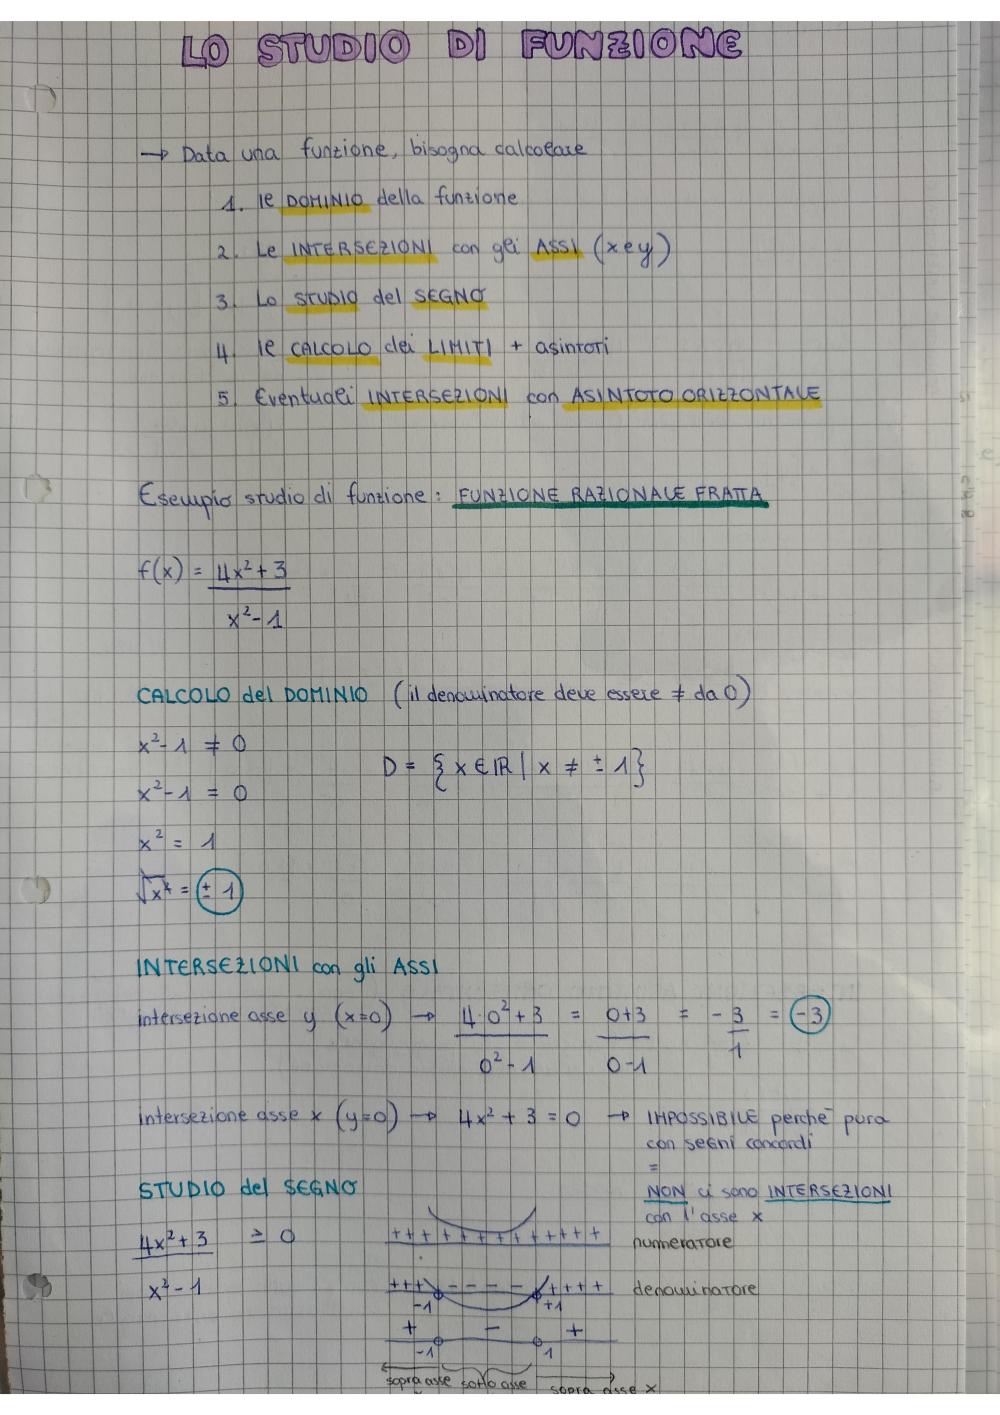 LO STUDIO DI FUNZIONE
→ Data una funzione, bisogna calcolare
1. Il DOMINIO della funzione
2. Le INTERSEZIONI con gli ASSI (x e y)
3. Lo STUDIO del SEGNO
4. Il CALCOLO dei LIMITI + asintoti
5. Eventuali INTERSEZIONI con ASINTOTO ORIZZONTALE
Esempio studio di funzione: FUNZIONE RAZIONALE FRATTA
f(x) = 4x²+3
x²-1
CALCOLO del DOMINIO (il denominatore deve essere ≠ da 0)
x²-1 ≠ 0
D = {x ∈ ℝ | x ≠ ± 1}
x²-1 = 0
x² = 1
√x² = ± 1
INTERSEZIONI con gli ASSI
intersezione asse y (x=0) → 4·0²+3 = 0+3 = - 3 = -3
0²-1 0-1 1
intersezione asse x (y=0) → 4x²+3=0 → IMPOSSIBILE perché pura
con segni concordi
=
NON ci sono INTERSEZIONI
con l'asse x
STUDIO del SEGNO
4x²+3 ≥ 0
x²-1
++++++++++++ numeratore
+++ - - - - ++++ denominatore
-1 +1
+ - +
-1 1
sopra asse sotto asse sopra asse x